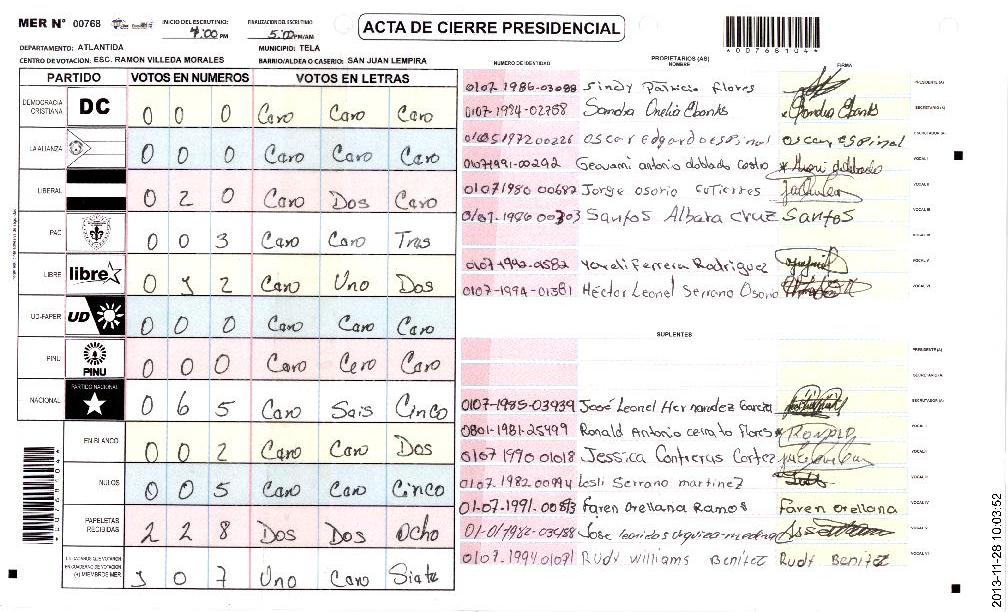 MER N° 00768
INICIO DEL ESCRUTINIO: 4:00 PM
FINALIZACION DEL ESCRUTINIO 5:00 PM/AM
ACTA DE CIERRE PRESIDENCIAL
*00768104*
DEPARTAMENTO: ATLANTIDA
MUNICIPIO: TELA
CENTRO DE VOTACION: ESC. RAMON VILLEDA MORALES
BARRIO/ALDEA O CASERIO: SAN JUAN LEMPIRA
PARTIDO VOTOS EN NUMEROS VOTOS EN LETRAS
DEMOCRACIA CRISTIANA DC 0 0 0 Caro Caro Caro
LA ALIANZA 0 0 0 Caro Caro Caro
LIBERAL 0 2 0 Caro Dos Caro
PAC 0 0 3 Caro Caro Tras
LIBRE libre 0 1 2 Caro Uno Dos
UD-FAPER UD 0 0 0 Caro Caro Caro
PINU PINU 0 0 0 Caro Cero Caro
NACIONAL PARTIDO NACIONAL 0 6 5 Caro Sais Cinco
EN BLANCO 0 0 2 Caro Caro Dos
NULOS 0 0 5 Caro Caro Cinco
PAPELETAS RECIBIDAS 2 2 8 Dos Dos Ocho
(+) MIEMBROS MER 1 0 7 Uno Caro Siata
*00768104*
PROPIETARIOS (AS)
NUMERO DE IDENTIDAD NOMBRE FIRMA
0107-1986-03088 Sindy Patricia Flores PRESIDENTE (A)
0107-1984-02768 Sandra Onelia Ebanks Sandra Ebanks SECRETARIO (A)
oscar Edgardo espinal oscar espinal ESCRUTADOR (A)
01071991-00292 Geovanni antonio doblado Castro VOCAL I
01071980 00682 Jorge Osorio Gutierres VOCAL II
0107-1986 00303 Santos Albara Cruz Santos VOCAL III
VOCAL IV
0107-1992-01582 Yoreli Ferrera Rodriguez VOCAL V
0107-1994-01381 Héctor Leonel Serrano Osorio VOCAL VI
SUPLENTES
PRESIDENTE (A)
SECRETARIO (A)
0107-1985-03939 José Leonel Hernandez Garcia ESCRUTADOR (A)
0801-1981-25499 Ronald Antonio cerrato flores VOCAL I
0107 1990 01018 Jessica Contreras Cortez VOCAL II
0107-1982 00994 Lesli Serrano martinez VOCAL III
0107-1991-00813 Faren Orellana Ramos Faren orellana VOCAL IV
Jose leonidas VOCAL V
0107-1994 01091 Rudy Williams Benitez Rudy Benitez VOCAL VI
2013-11-28 10:03:52